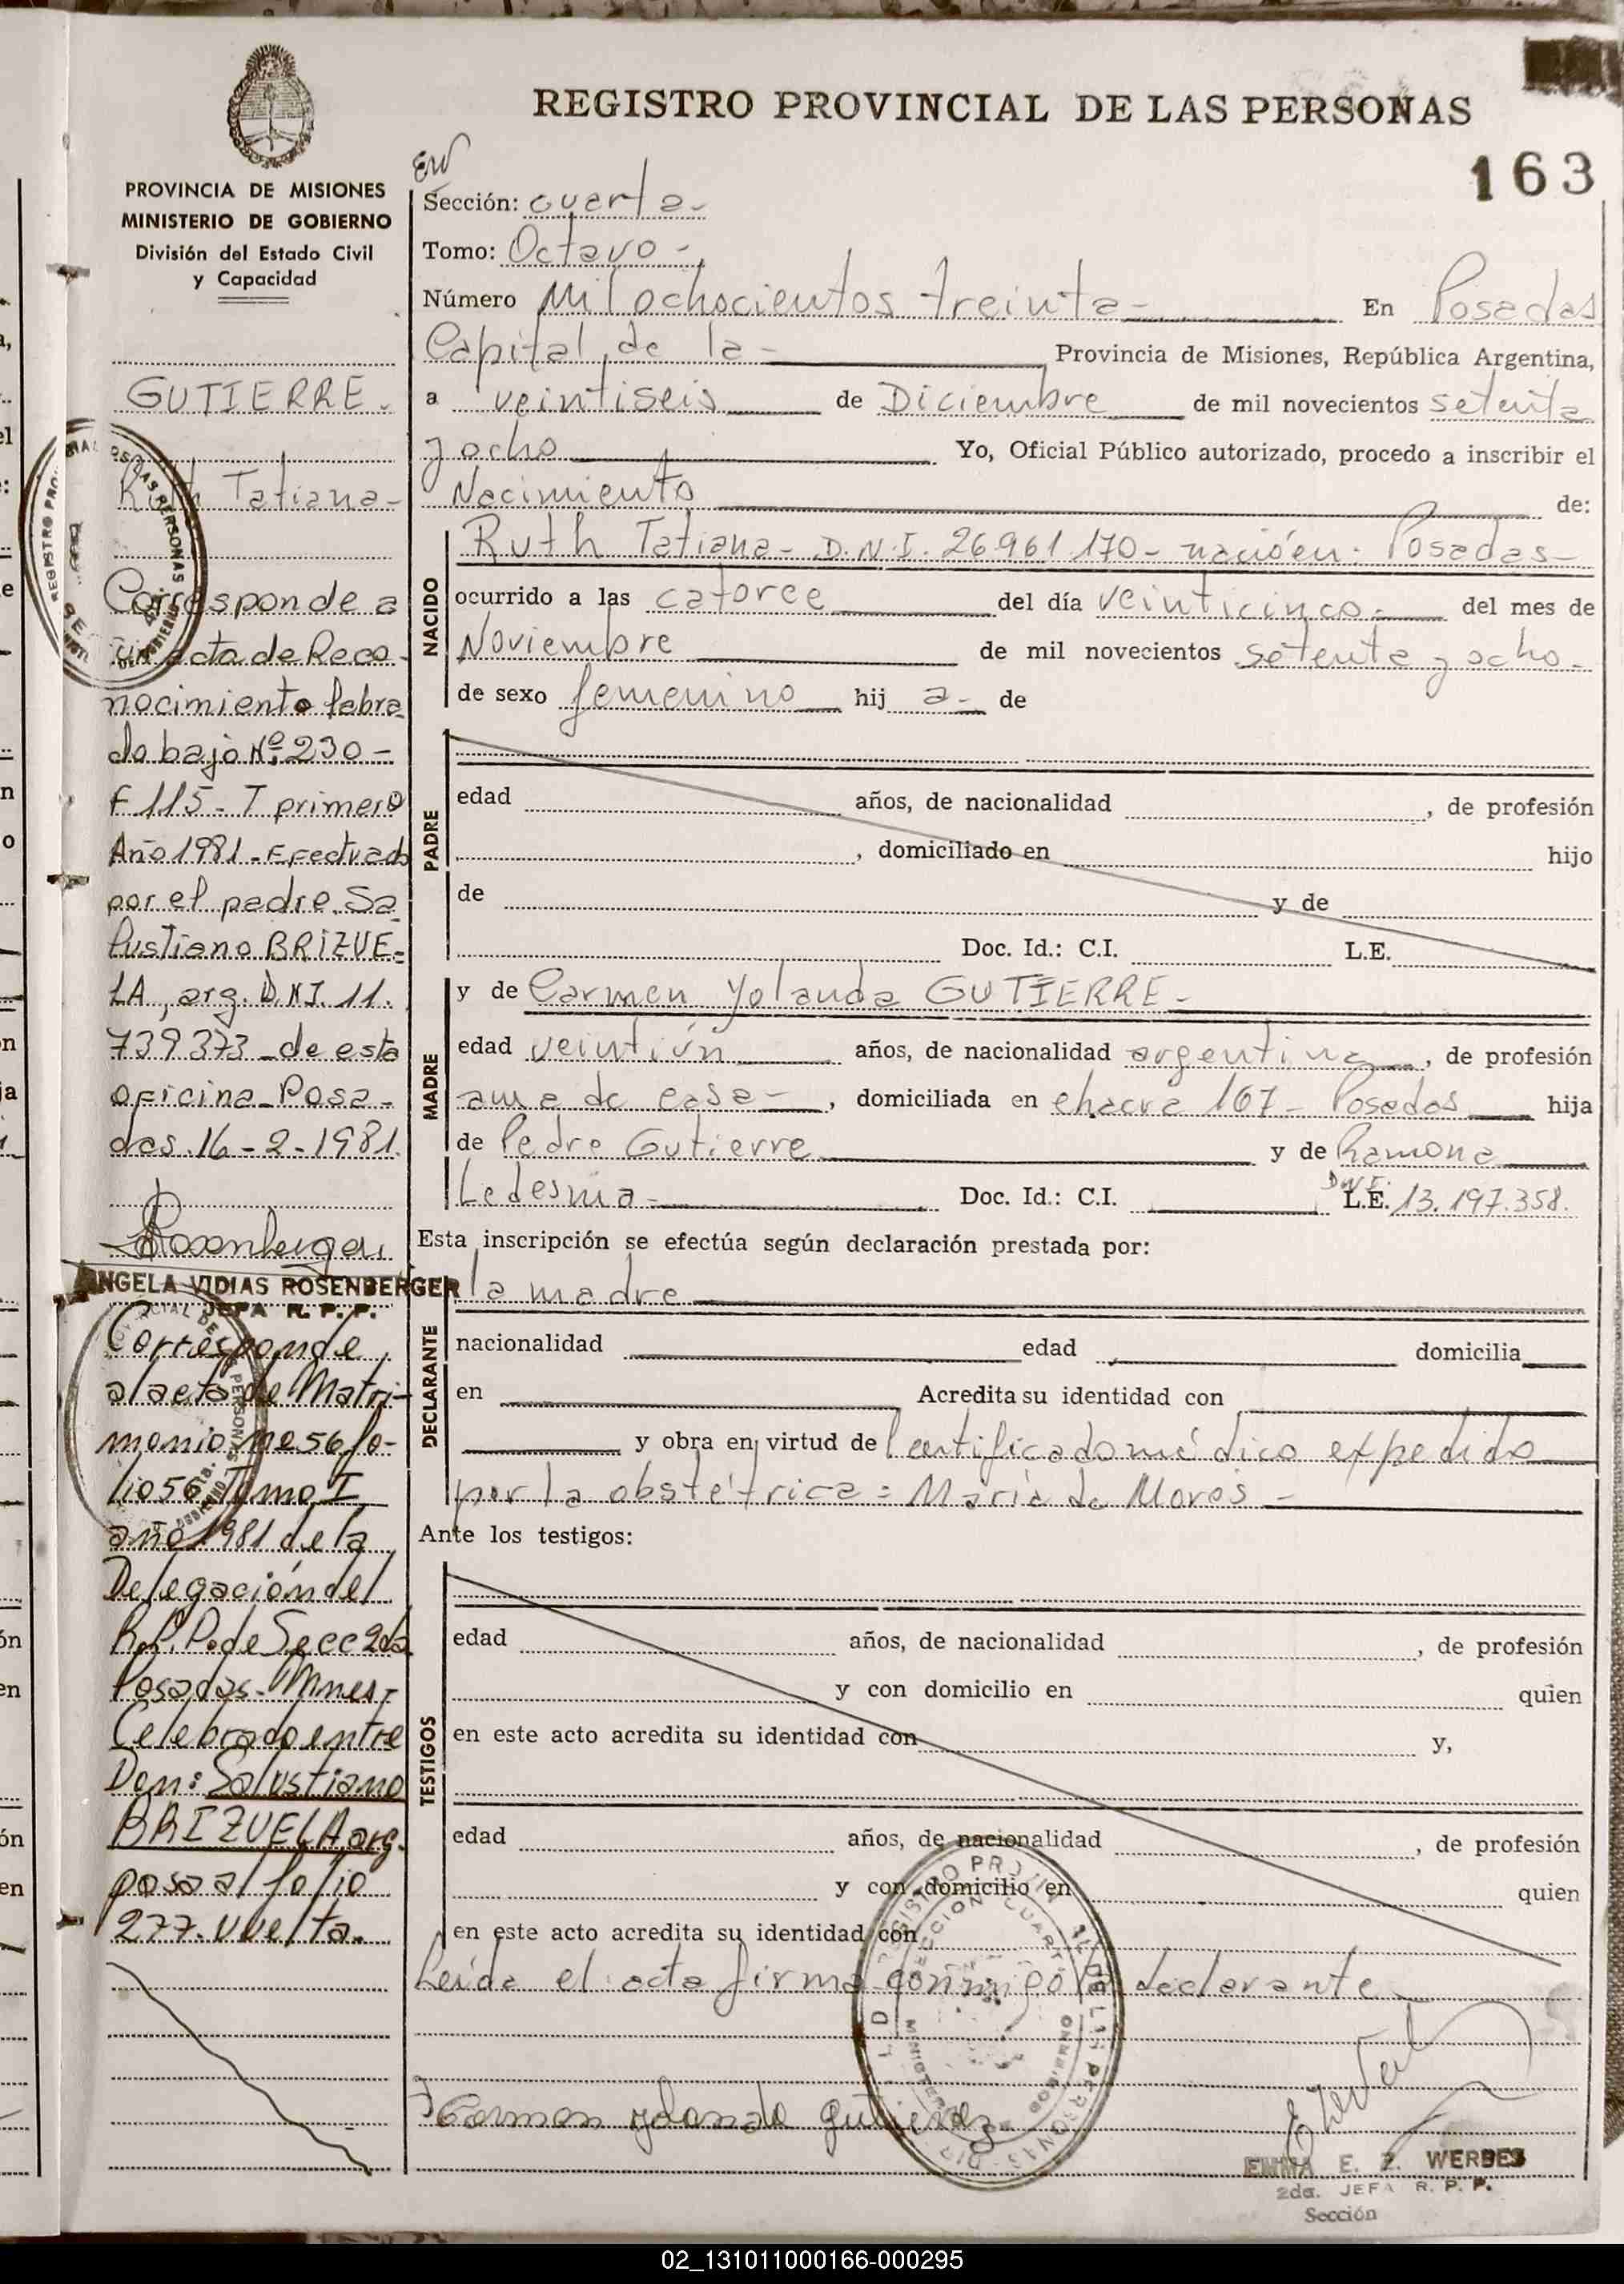 REGISTRO PROVINCIAL DE LAS PERSONAS
163
PROVINCIA DE MISIONES
MINISTERIO DE GOBIERNO
División del Estado Civil
y Capacidad
GUTIERRE.
Ruth Tatiana-
Corresponde a
un acta de Reco-
nocimiento labra
do bajo Nº 230-
F 115- T primero
Año 1981- Efectuado
por el padre Sa
lustiano BRIZUE-
LA, arg. D.N.I. 11.
739373 de esta
oficina-Posa-
das. 16-2-1981.
Rosenberger
ANGELA VIDIAS ROSENBERGER
JEFA R. P. P.
Corresponde
al acta de Matri-
monio nº 56 fo-
lio 56 Tomo I
año 1981 de la
Delegación del
R.P.P. de Secc 2da
Posadas-Mnes-
Celebrado entre
Don: Salustiano
BRIZUELA arg.
pasa al folio
277. vuelta.
Sección: cuarta-
Tomo: Octavo-
Número Mil ochocientos treinta- En Posadas
Capital de la- Provincia de Misiones, República Argentina,
a veintiseis de Diciembre de mil novecientos setenta
y ocho Yo, Oficial Público autorizado, procedo a inscribir el
Nacimiento de:
NACIDO
Ruth Tatiana- D.N.I. 26.961.170- nació en: Posadas-
ocurrido a las catorce del día veinticinco- del mes de
Noviembre de mil novecientos setenta y ocho-
de sexo femenino hij a- de
PADRE
edad años, de nacionalidad , de profesión
, domiciliado en hijo
de y de
Doc. Id.: C.I. L.E.
MADRE
y de Carmen Yolanda GUTIERRE-
edad veintiún años, de nacionalidad argentina , de profesión
ama de casa- , domiciliada en chacra 167- Posadas hija
de Pedro Gutierre y de Ramona
Ledesma- Doc. Id.: C.I. D.N.I. L.E. 13.197.358.
Esta inscripción se efectúa según declaración prestada por:
DECLARANTE
la madre
nacionalidad edad domicilia
en Acredita su identidad con
y obra en virtud de Certificado médico expedido
por la obstétrica: María de Mores-
Ante los testigos:
TESTIGOS
edad años, de nacionalidad , de profesión
y con domicilio en quien
en este acto acredita su identidad con y,
edad años, de nacionalidad , de profesión
y con domicilio en quien
en este acto acredita su identidad con
Leída el acta firma conmigo la declarante-
Carmen Yolanda Gutierrez
EMMA E. Z. WERBES
2da. JEFA R. P. P.
Sección
02_131011000166-000295